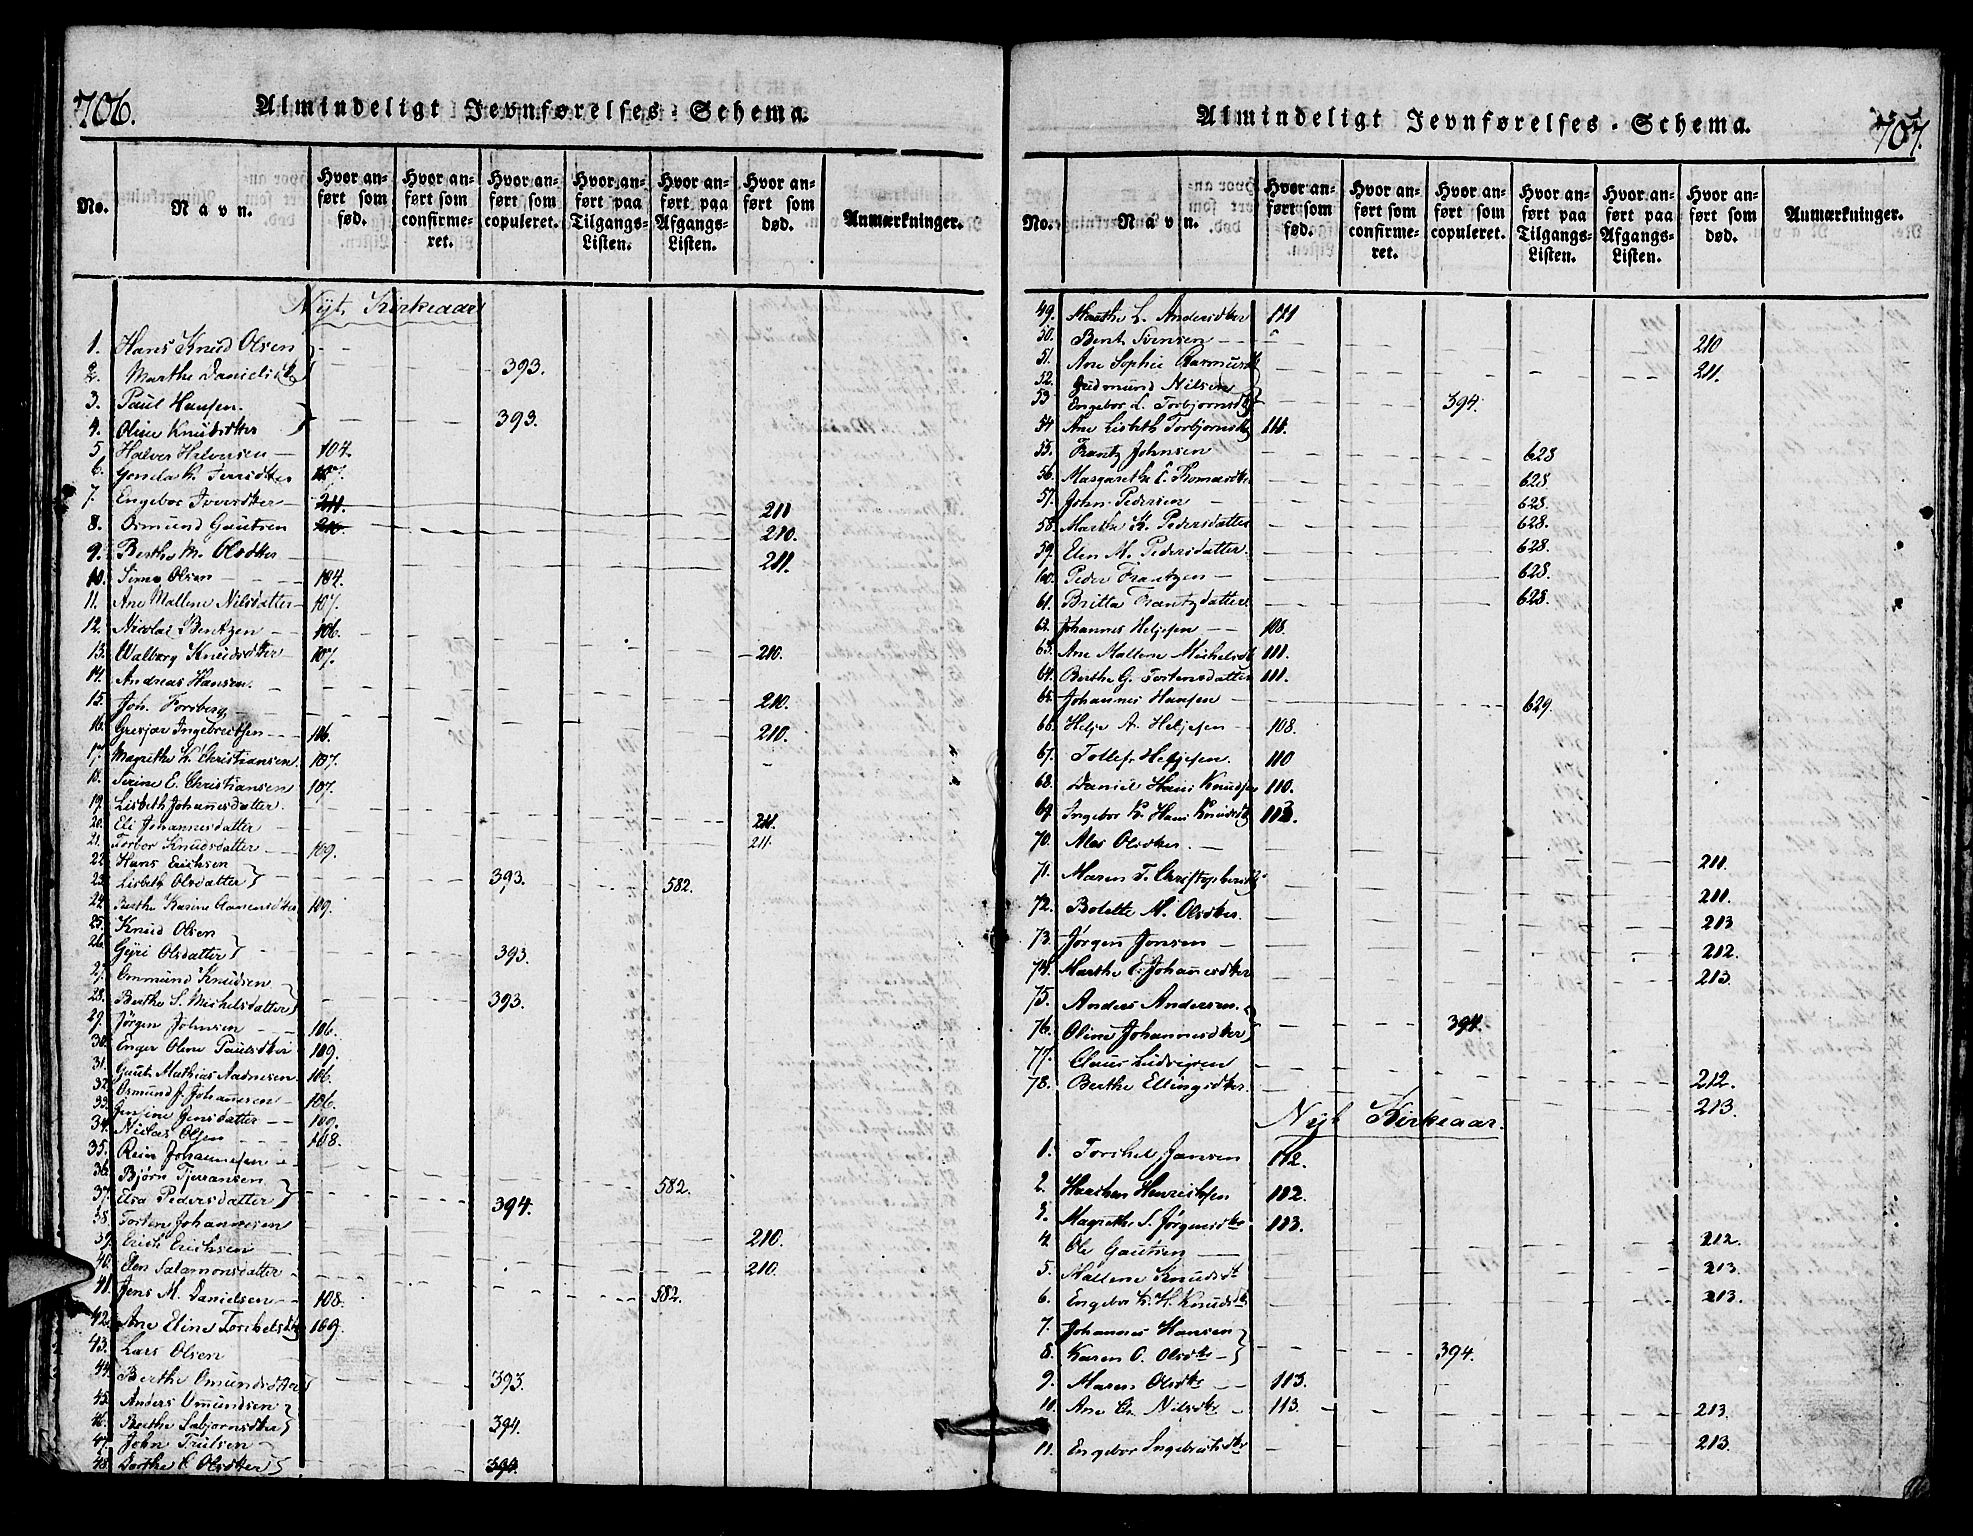 706.
Almindeligt Jevnførelses-Schema.
No. Navn. Hvor anført som fød. Hvor anført som confirmeret. Hvor anført som copuleret. Hvor anført paa Tilgangs-Listen. Hvor anført paa Afgangs-Listen. Hvor anført som død. Anmærkninger.
Nyt Kirkeaar
1. Hans Knud Olsen
2. Marthe Danielsdtr 393.
3. Paul Hansen.
4. Oline Knudsdtter 393.
5 Halver Halversen 104.
6. K. 107.
7. Engebor Iversdtter 211. 211
8. Osmund Gautsen 210. 210.
9. Berthe M. Olsdtter 211.
10. Simo Olsen 104.
11. Ane Mallene Nilsdatter 107.
12. Nicolai Bentzen 106.
13. Walborg Knudsdtter 107. 210.
14. Andreas Hansen.
15. Joh. Forsberg 210.
16. Gresjær Ingebretsen 106. 210.
17. Magrethe K. Christiansen. 107.
18. Serine E. Christiansen 107.
19. Lisbeth Johanesdatter.
20. Eli Johannesdatter 211.
21. Torbor Knudsdatter 109. 211.
22. Hans Erichsen
23. Lisbeth Olsdatter 393. 582.
24. Berthe Karine Aanensdtter 109.
25. Knud Olsen
26. Gyri Olsdatter 393.
27. Ommund Knudsen
28. Berthe S. Michelsdatter 393.
29. Jørgen Johnsen 106.
30. Enger Oline Paulsdtter 109.
31. Gaut Mathias Aadnesen. 106.
32. Osmund J. Johannesen 106.
33. Jensine Jensdatter 109.
34. Niclas Olsen 108.
35. Rein Johannesen
36. Bjørn Tjerransen 582.
37. Elsa Pedersdatter 394.
38. Torten Johannesen
39. Erich Erichsen 210.
40. Elen Salamonsdatter 210.
41. Jens M. Danielsen 108. 582.
42. Ane Eline Torchelsdtr 109.
43. Lars Olsen
44. Berthe Omundsdtter 393.
45. Anders Omundsen
46. Berthe Asbjornsdtter 394.
47. John Trulsen
48. Dorthe C. Olsdtter 394.
707.
Almindeligt Jevnførelses-Schema.
No. Navn. Hvor anført som fød. Hvor anført som confirmeret. Hvor anført som copuleret. Hvor anført paa Tilgangs-Listen. Hvor anført paa Afgangs-Listen. Hvor anført som død. Anmærkninger.
49. Marthe L. Andersdtter 111
50. Bent Svensen 210
51. Ane Sophie Aarmundsdtr 211.
52. Gudmund Nilsen
53 Engebor L. Torbjornsdtr 394.
54 Ane Lisbeth Torbjornsdtr 111.
55. Frantz Johnsen 628
56. Margarethe C. Thomasdtter 628
57. John Pedersen 628.
58. Marthe K. Pedersdatter 628.
59. Elen M. Pedersdatter. 628.
60. Peder Frantzen 628.
61. Britta Frantzdatter 628.
62. Johannes Heljesen 108.
63. Ane Mallene Michelsdtr 111.
64. Berthe G. Tortensdatter 111.
65. Johannes Hansen 629.
66. Helje A. Heljesen 108.
67. Tollef Heljesen. 110
68. Daniel Hans Knudsen 110.
69. Ingebor K. Hans Knudsdtr 113.
70. Alas Olsdtter. 211.
71. Maren T. Christophersdtr 211.
72. Bolette M. Olsdtter. 213
73. Jørgen Jonsen 212.
74. Marthe E. Johannesdtter 213.
75. Anders Andersen.
76. Oline Johannesdtter 394.
77. Claus Ludvigsen 212.
78. Berthe Ellingsdtter. 213.
Nyt Kirkeaar.
1. Torchel Jansen 112.
2. Henrichsen 112.
3. Magrethe S. Jørgensdtr 113.
4. Ole Gautsen 212.
5. Mallene Knudsdtr 213.
6. Engebor K. H. Knudsdtr 213.
7. Johannes Hansen
8. Karen O. Olsdtr 394.
9. Maren Olsdtr 113.
10. Ane Ch. Nilsdtr 113. 213.
11. Engebor Ingebretsdtr 213.